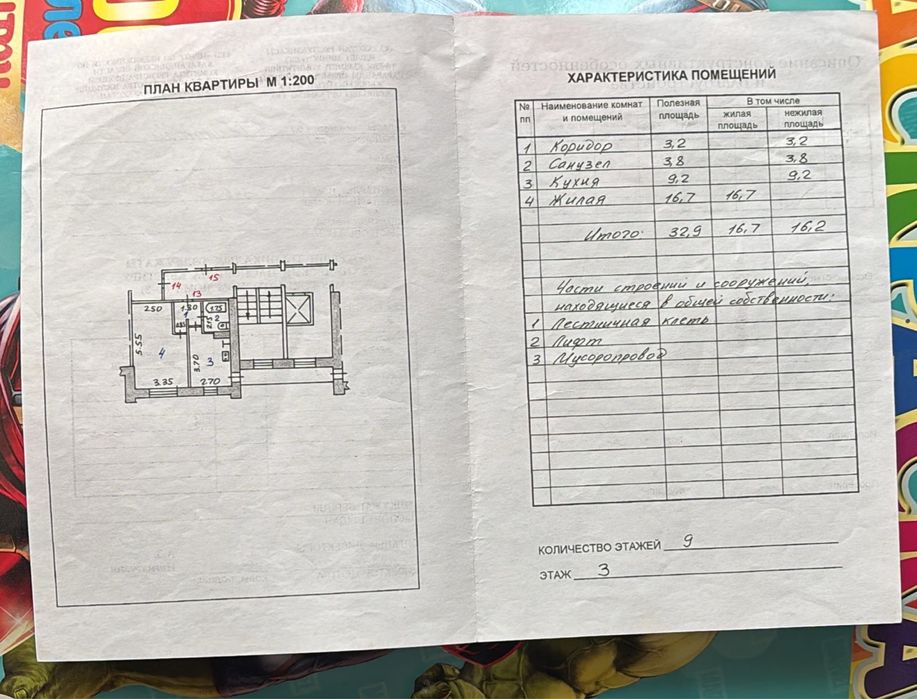 ПЛАН КВАРТИРЫ М 1:200
15
14
13
250
1.80
1
1.75
2
2.15
5.55
4
3.70
3
3.35
2.70
ХАРАКТЕРИСТИКА ПОМЕЩЕНИЙ
№ пп Наименование комнат и помещений Полезная площадь В том числе
жилая площадь нежилая площадь
1 Коридор 3,2 3,2
2 Санузел 3,8 3,8
3 Кухня 9,2 9,2
4 Жилая 16,7 16,7
Итого: 32,9 16,7 16,2
Части строений и сооружений,
находящиеся в общей собственности:
1 Лестничная клеть
2 Лифт
3 Мусоропровод
КОЛИЧЕСТВО ЭТАЖЕЙ 9
ЭТАЖ 3